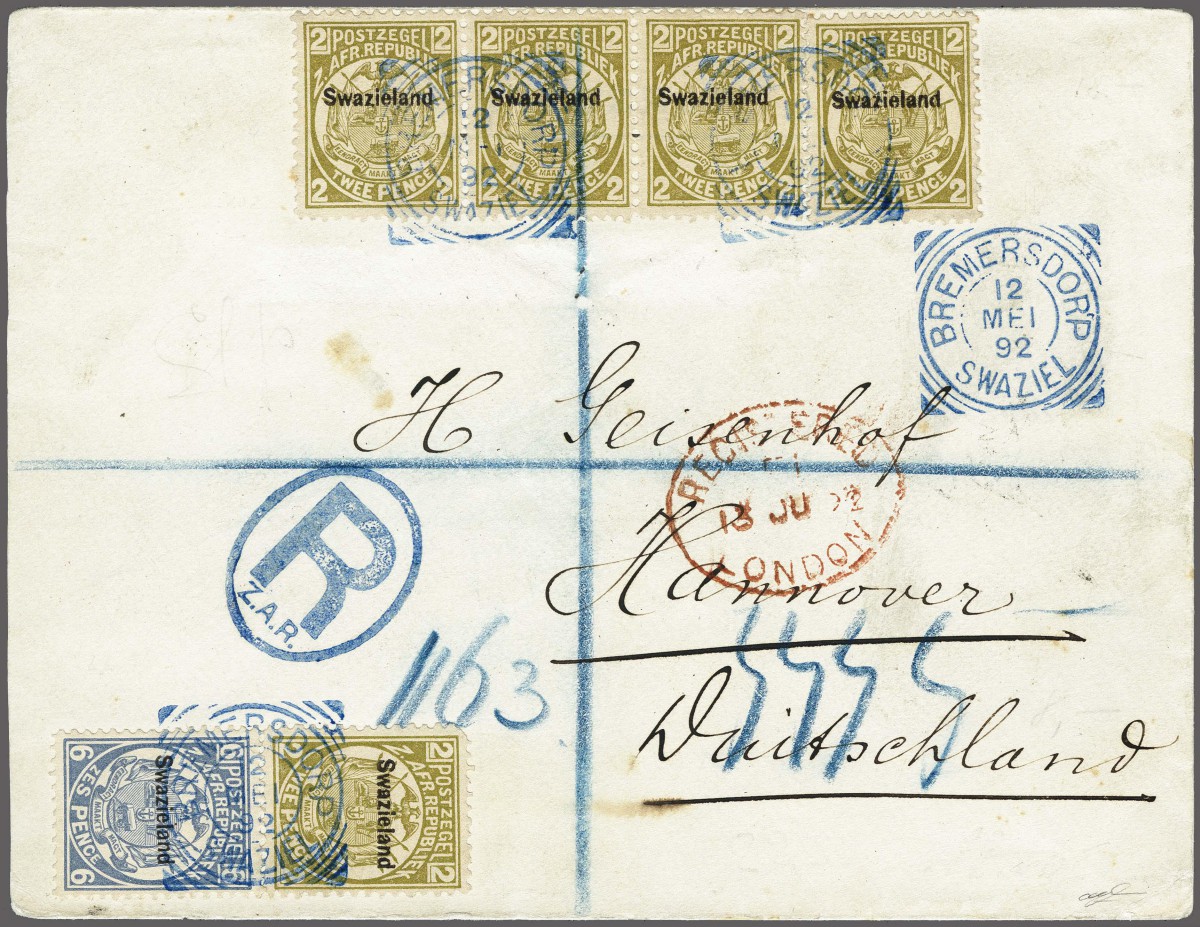 2 POSTZEGEL 2
Z. AFR. REPUBLIEK
Swazieland
EENDRAGT MAAKT MAGT
2 TWEE PENCE 2
2 POSTZEGEL 2
Z. AFR. REPUBLIEK
Swazieland
EENDRAGT MAAKT MAGT
2 TWEE PENCE 2
2 POSTZEGEL 2
Z. AFR. REPUBLIEK
Swazieland
EENDRAGT MAAKT MAGT
2 TWEE PENCE 2
2 POSTZEGEL 2
Z. AFR. REPUBLIEK
Swazieland
EENDRAGT MAAKT MAGT
2 TWEE PENCE 2
BREMERSDORP
12
MEI
92
SWAZIEL
H. Geisenhof
REGISTERED
13 JU 92
LONDON
Hannover
R
Z.A.R.
1163
Duitschland
6 POSTZEGEL 6
Z. AFR. REPUBLIEK
Swazieland
EENDRAGT MAAKT MAGT
6 ZES PENCE 6
2 POSTZEGEL 2
Z. AFR. REPUBLIEK
Swazieland
2 TWEE PENCE 2